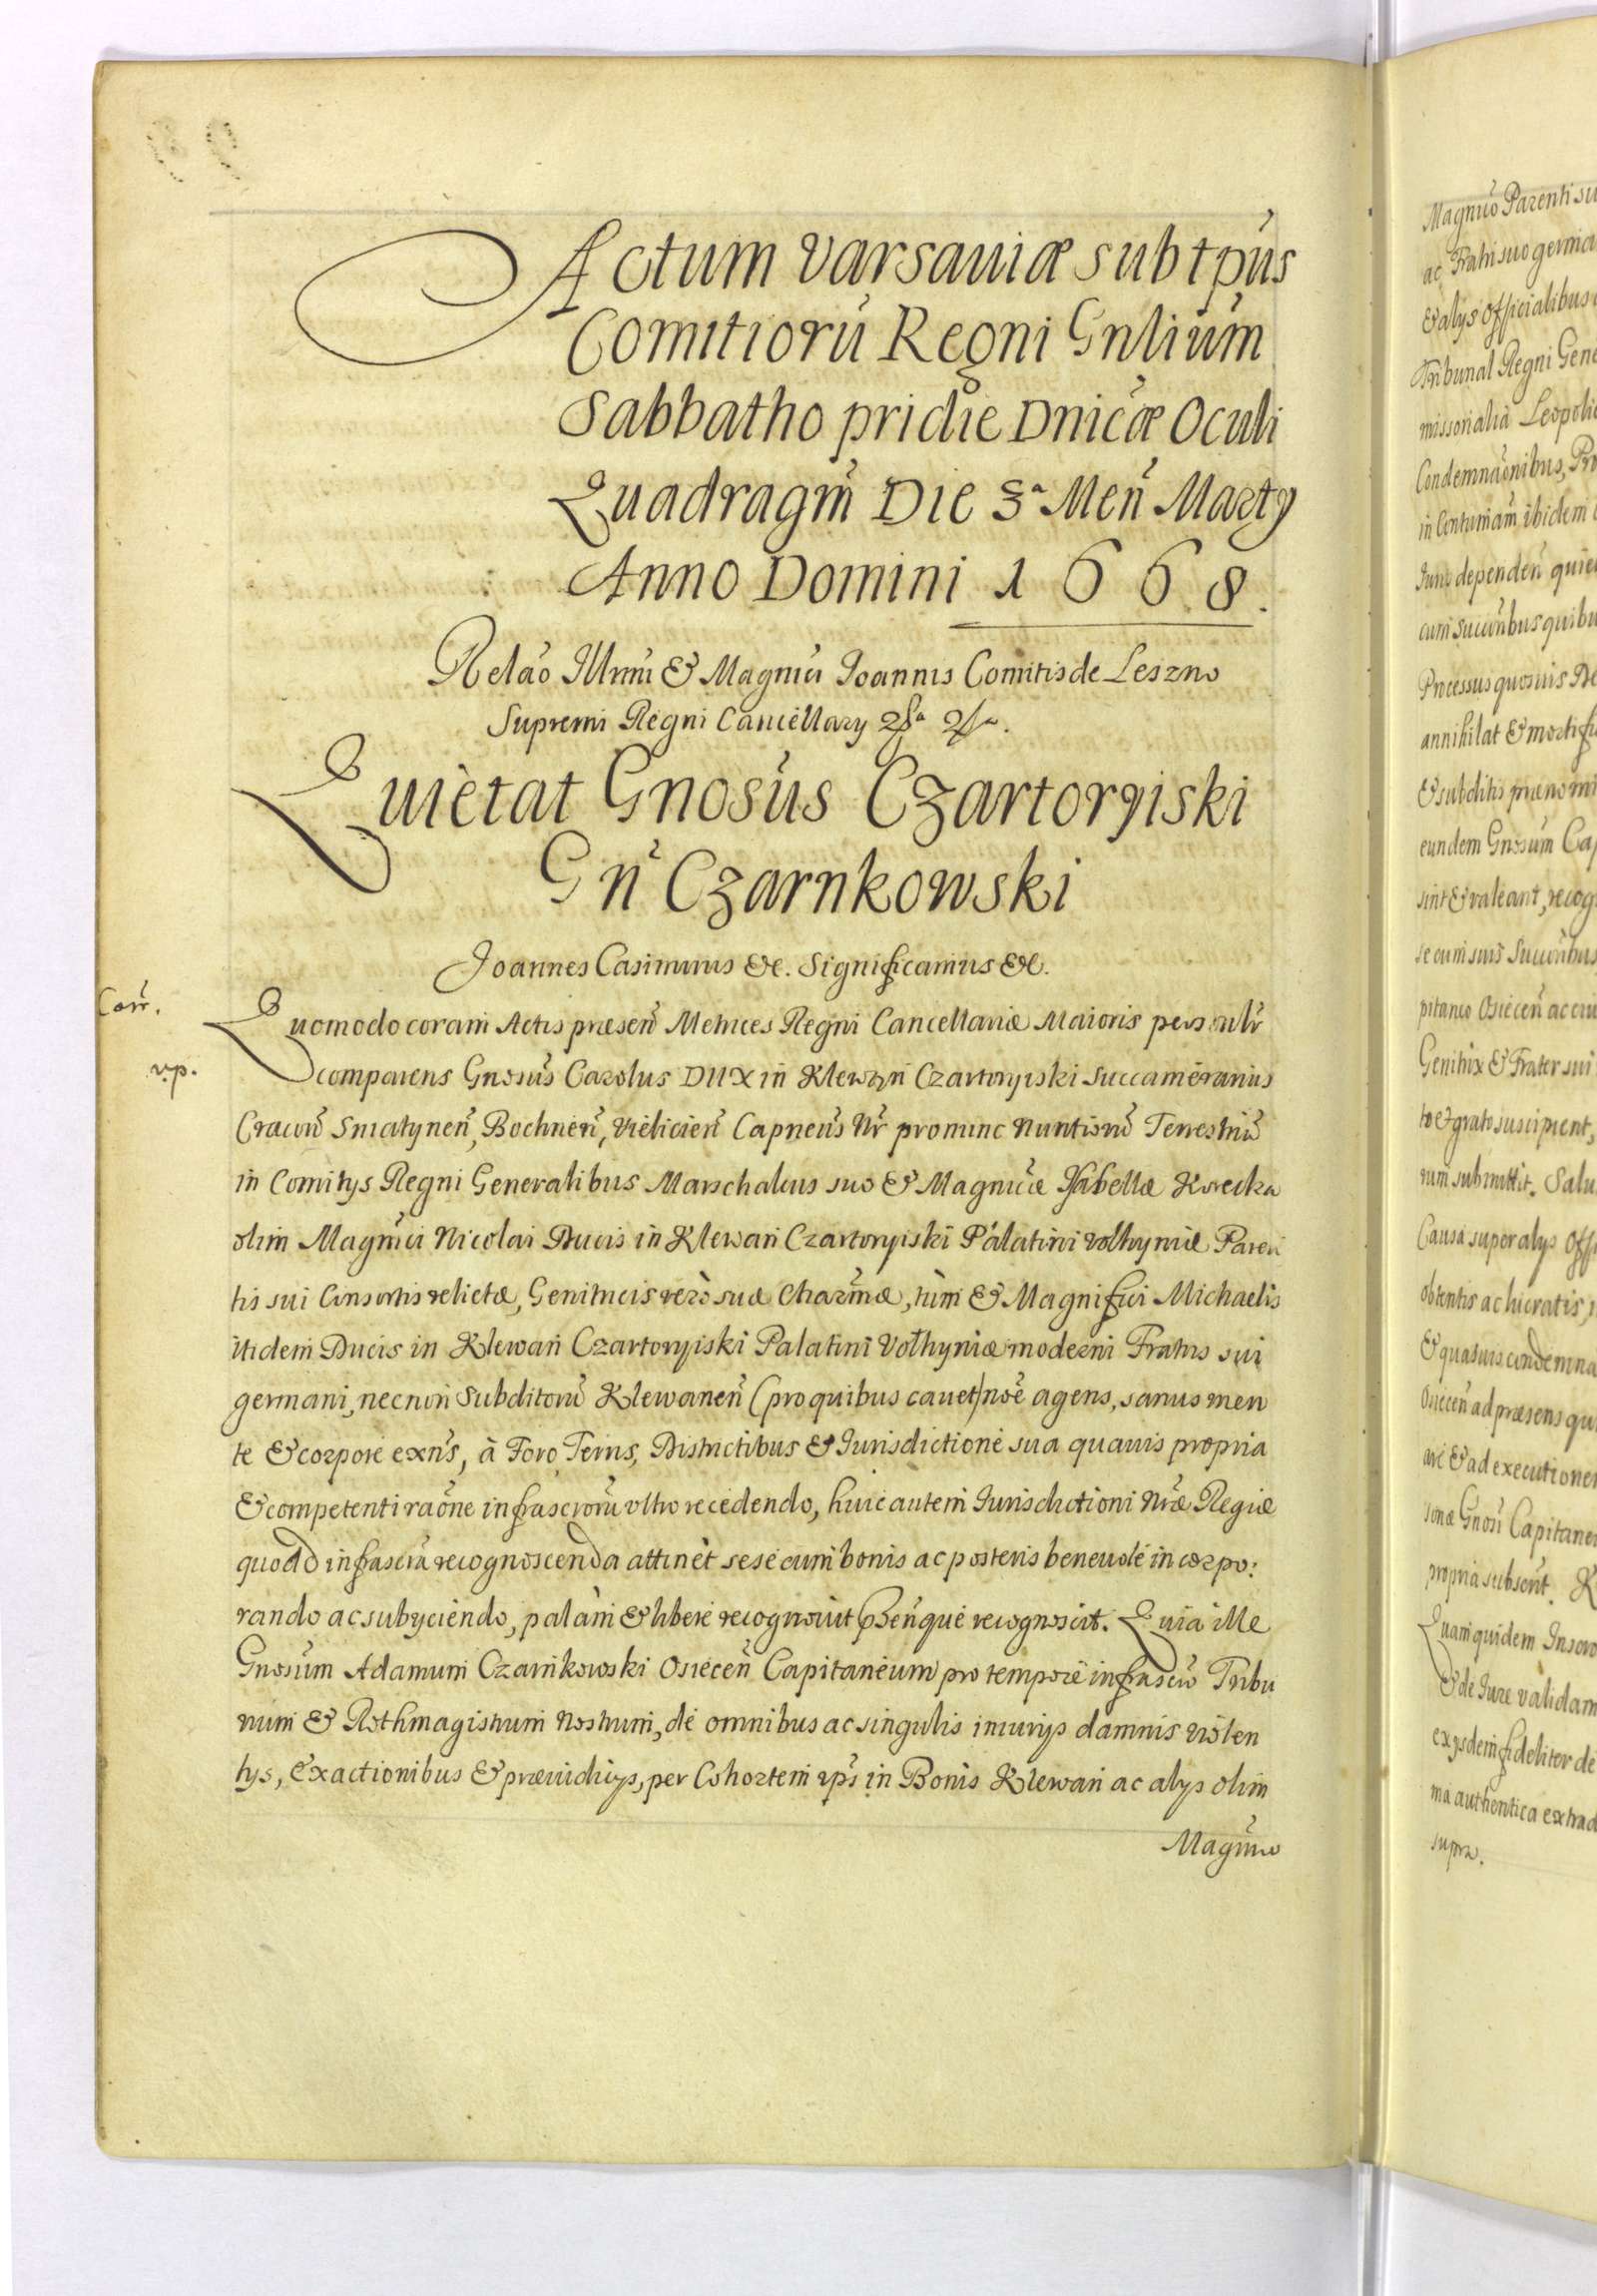 Actum Varsaviæ sub tpūs
Comitiorū Regni Gnlium
Sabbatho pridie Dnicæ Oculi
Quadragm̃ Die 3ª Men̄ Marty
Anno Domini 1668.
Relaõ Illrmi & Magnici Joannis Comitis de Leszno
Supremi Regni Cancellary
Quietat Gnosus Czartoryiski
Gñ Czarnkowski
Joannes Casimirus &c. Significamus &c.
Corr.
Quomodo coram Actis præsen̄ Metrices Regni Cancellariæ Maioris personlr
v.p.
comparens Gnosus Carolus DUX in Klewan Czartoryiski Succamerarius
Cracovn̄ Sniatynen̄, Bochnen̄, Vieliciēn Capneus Nr̄ pro nunc Nuntiorū Terrestriū
in Comitys Regni Generalibus Marschalcus suo & Magnicæ Isabellæ Korecka
olim Magnici Nicolai Ducis in Klewań Czartoryiski Palatini Volhyniæ Paren
tis sui Consortis relictæ, Genitricis verò suæ Charm̄æ, tùm & Magnifici Michaelis
itidem Ducis in Klewań Czartoryiski Palatini Volhyniæ moderni Fratris sui
germani, necnon Subditorū Klewanen̄ (pro quibus cavet) noē agens, sanus men
te & corpore exn̄s, à Foro Terris, Districtibus & Jurisdictione sua quavis propria
& competenti raōne infrascrorū ultro recedendo, huic autem Jurisdictioni Nr̄æ Regiæ
quo ad infrascra recognoscenda attinet sese cum bonis ac posteris benevole incorpo:
rando ac subyciendo, palàm & libere recognovit psen̄que recognoscit. Quia ille
Gnosum Adamum Czarnkowski Osiecen̄ Capitaneum pro tempore infrascro Tribu
num & Rothmagistrum Nostrum, de omnibus ac singulis iniurys damnis violen
tys, exactionibus & præiudicys, per Cohortem ips in Bonis Klewań ac alys olim
Magnico
Magnico Parenti su
ac Fratri suo germa
& alys Officialibus
Tribunal Regni Gene
missorialia Leopoli
Condemnaōnibus, Pro
in Contumam ibidem
Jure dependen̄ quie
cum Succrībus quibu
Processus quosvis De
annihilat & mortifi
& subditis prænomi
eundem Gnosum Cap
sint & valeant, recog
se cum suis Succribus
pitaneo Osiecen̄ ac eiu
Genitrix & Frater sui
to & grato suscipient,
rum submittit. Salu
Causa super alys Offi
obtentis ac lucratis,
& quasvis condemna
Osiecen̄ ad præsens qu
are & ad executionem
sonæ Gnosi Capitane
propria subscrit.
Quam quidem Inscro
& de Jure validam
ex ysdem fideliter de
ma authentica extrad
supra.